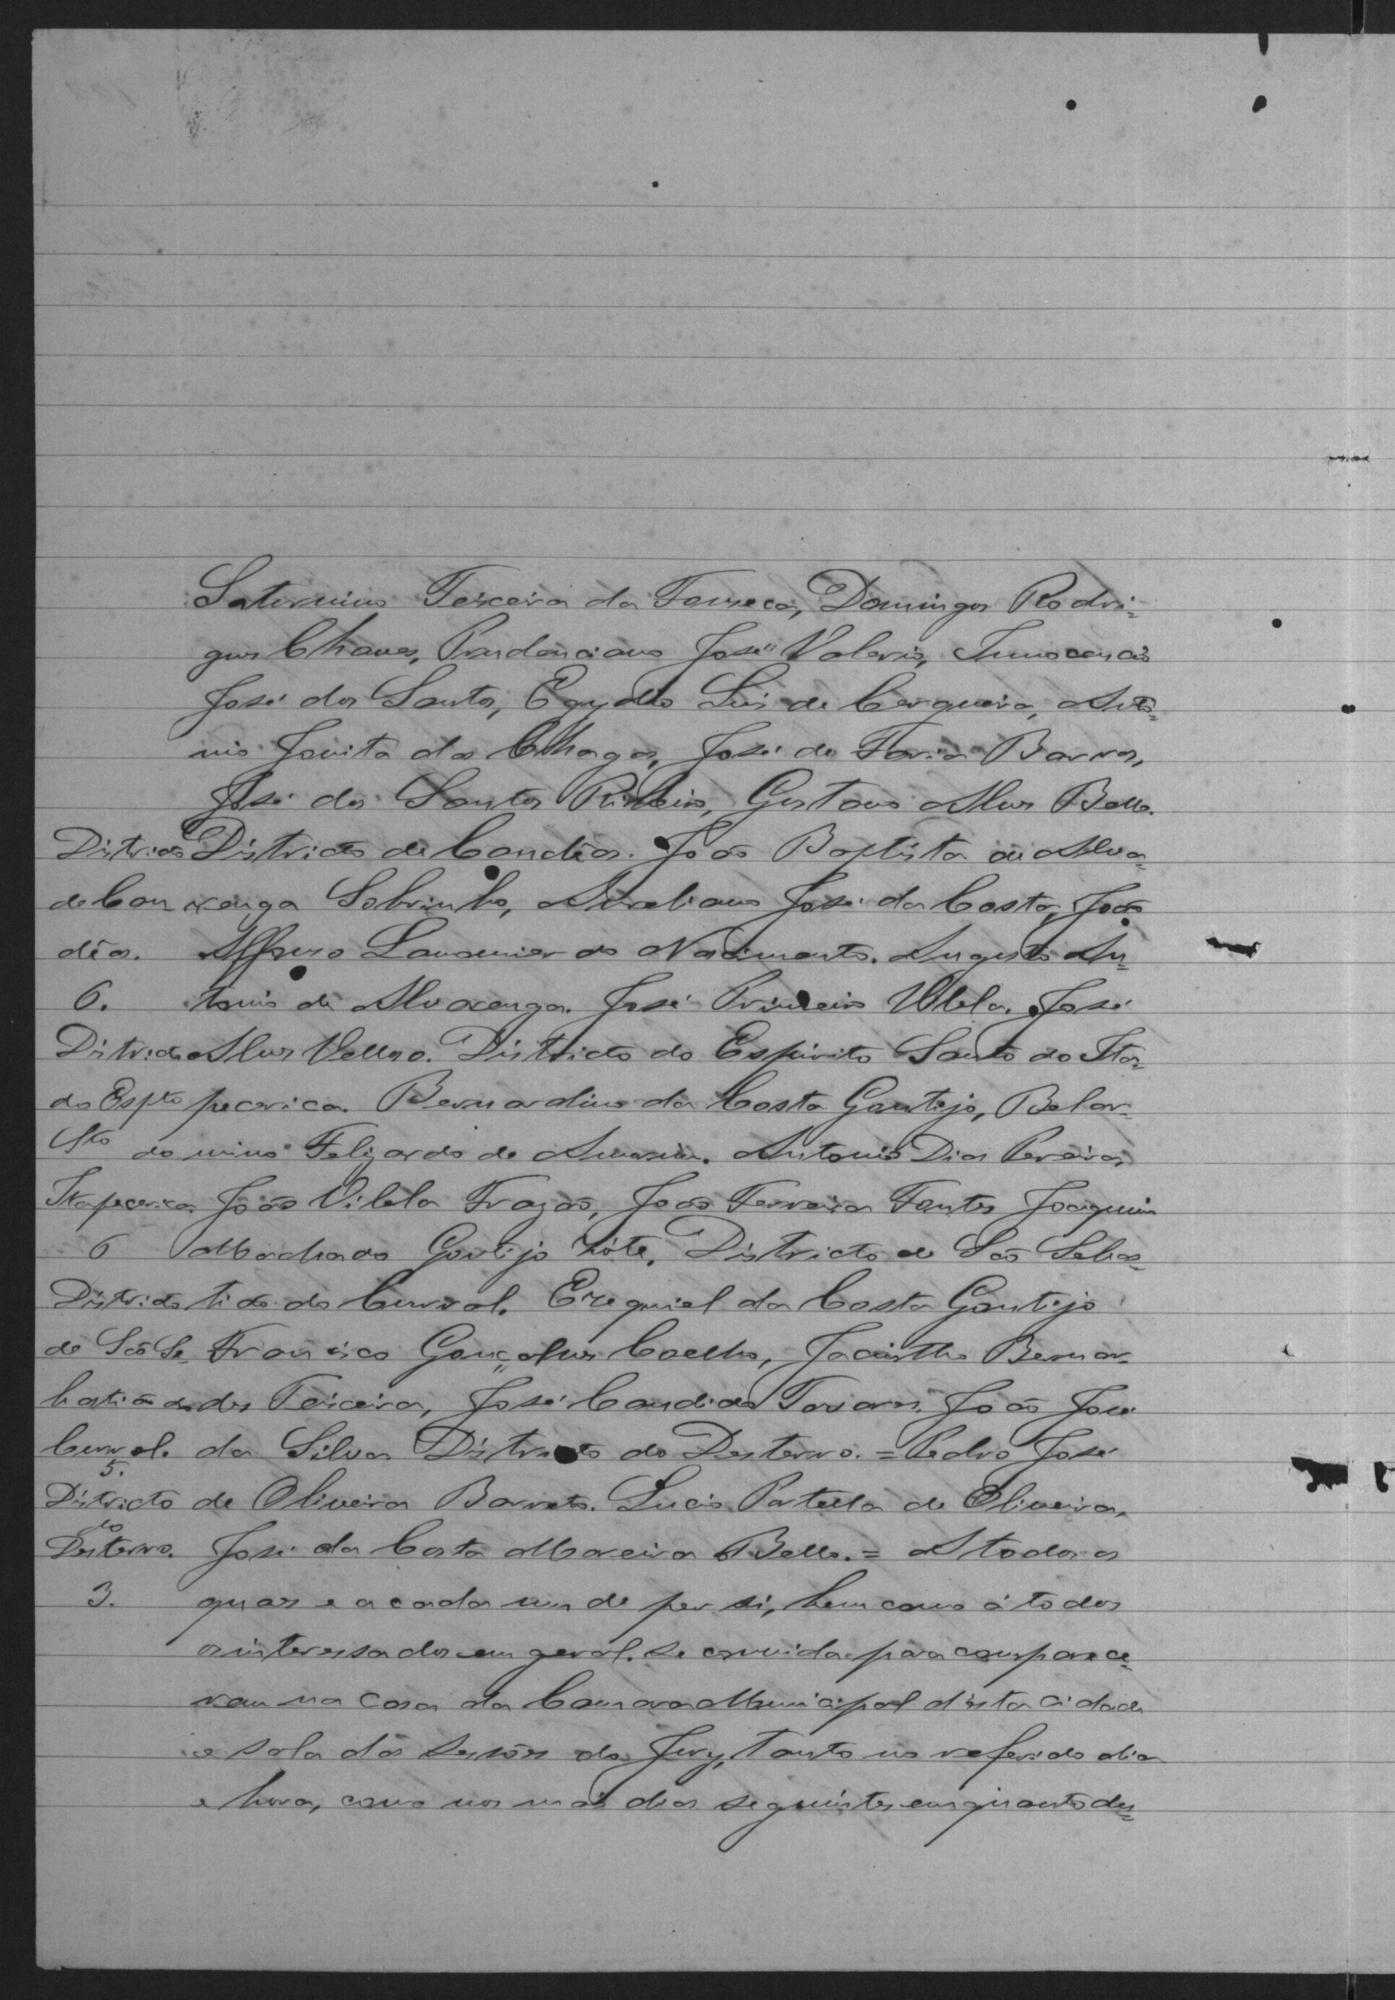 Saturnino Teixeira da Fonseca, Domingos Rodri=
gues Chaves, Prudenciano José Valerio, Innocencio
José dos Santos, Egydio Luis de Cerqueira, Anto=
nio Jovita das Chagas, José de Faria Barros,
José dos Santos Ribeiro, Gustavo Alves Bello.
Districto Districto de Candêas. João Baptista de Alva=
de Can renga Sobrinho, Aureliano José da Costa, João
dêas. Affonso Lamounier do Nascimento. Augusto An=
6. tonio de Alvarenga. José Primeiro Vilela. José
Districto Alves Velloso. Districto do Espirito Santo do Ita=
do Espto pecerica. Bernardino da Costa Gontijo, Belar=
Sto do mino Felizardo de Amorim. Antonio Dias Pereira,
Itapecerica. João Vilela Frazão, João Ferreira Fontes Joaquim
6 Machado Gontijo Nóte. Districto de São Sebas=
Districto tião do Curral. Ezequiel da Costa Gontijo
de São Se Francisco Gonçalves Coelho, Jacintho Bernar=
bastião do des Teixeira, José Candido Tavares. João José
Curral. da Silva Districto do Desterro. = Pedro José
5.
Districto de Oliveira Barreto. Lucio Portella de Oliveira,
do
Desterro. José da Costa Moreira Bello. = A todos os
3. quaes e a cada um de per si, bem como á todos
os interessados em geral. se convida para comparece=
rem na casa da Camara Municipal desta cidade
e sala das sessões do Jury, tanto no referido dia
e hora, como nos mais dias seguintes emquanto du=